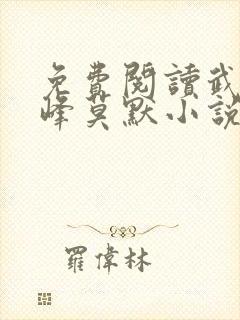 免費閱讀武
峰莫默小說
羅偉林